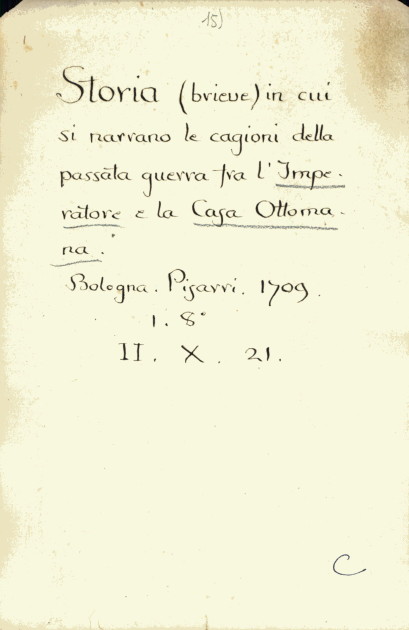 15)
Storia (brieve) in cui
si narrano le cagioni della
passata guerra fra l'Impe-
ratore e la Casa Ottoma-
na.
Bologna. Pisarri. 1709.
1. 8°
II. X. 21.
C